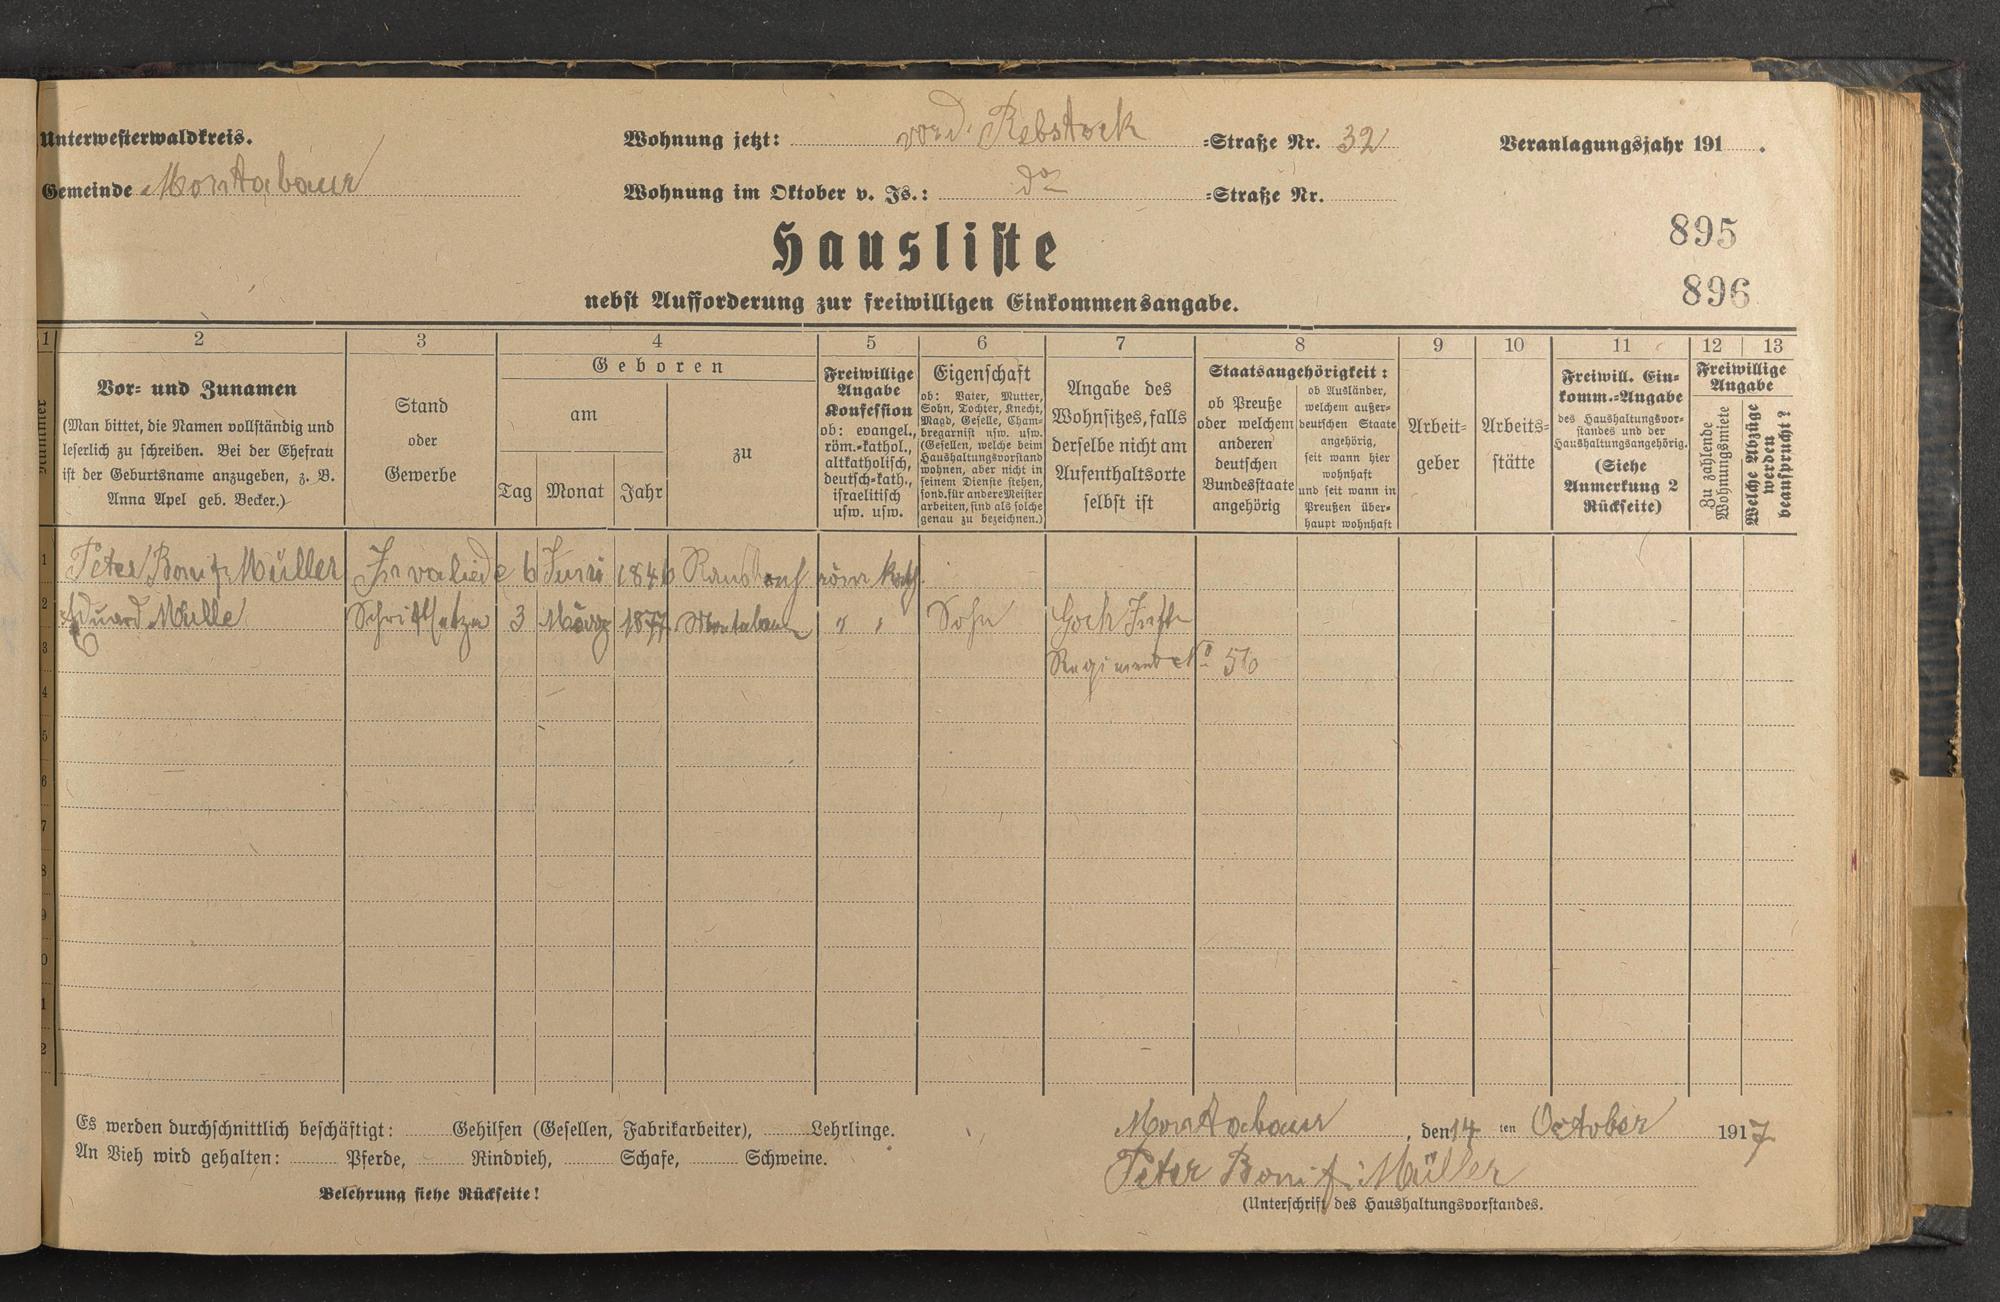 Unterwesterwaldkreis.
Wohnung jetzt: vord. Rebstock =Straße Nr. 32
Veranlagungsjahr 191 .
Gemeinde Montabaur
Wohnung im Oktober v. Js.: do =Straße Nr.
895
Hausliste
896
nebst Aufforderung zur freiwilligen Einkommensangabe.
1 2 3 4 5 6 7 8 9 10 11 12 13
Nummer
Vor- und Zunamen
(Man bittet, die Namen vollständig und
leserlich zu schreiben. Bei der Ehefrau
ist der Geburtsname anzugeben, z. B.
Anna Apel geb. Becker.)
Stand
oder
Gewerbe
Geboren
am
zu
Tag Monat Jahr
Freiwillige
Angabe
Konfession
ob: evangel.,
röm.-kathol.,
altkatholisch,
deutsch-kath.,
israelitisch
usw. usw.
Eigenschaft
ob: Vater, Mutter,
Sohn, Tochter, Knecht,
Magd, Geselle, Cham-
bregarnist usw. usw.
(Gesellen, welche beim
Haushaltungsvorstand
wohnen, aber nicht in
seinem Dienste stehen,
sond. für andere Meister
arbeiten, sind als solche
genau zu bezeichnen.)
Angabe des
Wohnsitzes, falls
derselbe nicht am
Aufenthaltsorte
selbst ist
Staatsangehörigkeit:
ob Preuße
oder welchem
anderen
deutschen
Bundesstaate
angehörig
ob Ausländer,
welchem außer-
deutschen Staate
angehörig,
seit wann hier
wohnhaft
und seit wann in
Preußen über-
haupt wohnhaft
Arbeit-
geber
Arbeits-
stätte
Freiwill. Ein-
komm.-Angabe
des Haushaltungsvor-
standes und der
Haushaltungsangehörig.
(Siehe
Anmerkung 2
Rückseite)
Freiwillige
Angabe
Zu zahlende
Wohnungsmiete
Welche Abzüge
werden
beansprucht?
1 Peter Bonif. Müller Invaliede 6 Juni 1846 röm kath.
2 Eduard Mülle Schriftsetzer 3 März 1877 Montabaur " " Sohn
3 Regiment No
4
5
6
7
8
9
0
1
2
Es werden durchschnittlich beschäftigt: Gehilfen (Gesellen, Fabrikarbeiter), Lehrlinge.
An Vieh wird gehalten: Pferde, Rindvieh, Schafe, Schweine.
Belehrung siehe Rückseite!
Montabaur , den 14 ten October 1917
Peter Bonif. Müller
(Unterschrift des Haushaltungsvorstandes.